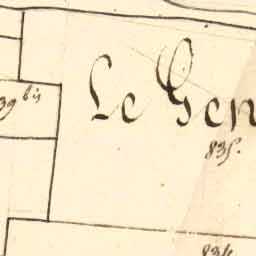 Le Gen
39 bis
835.
834